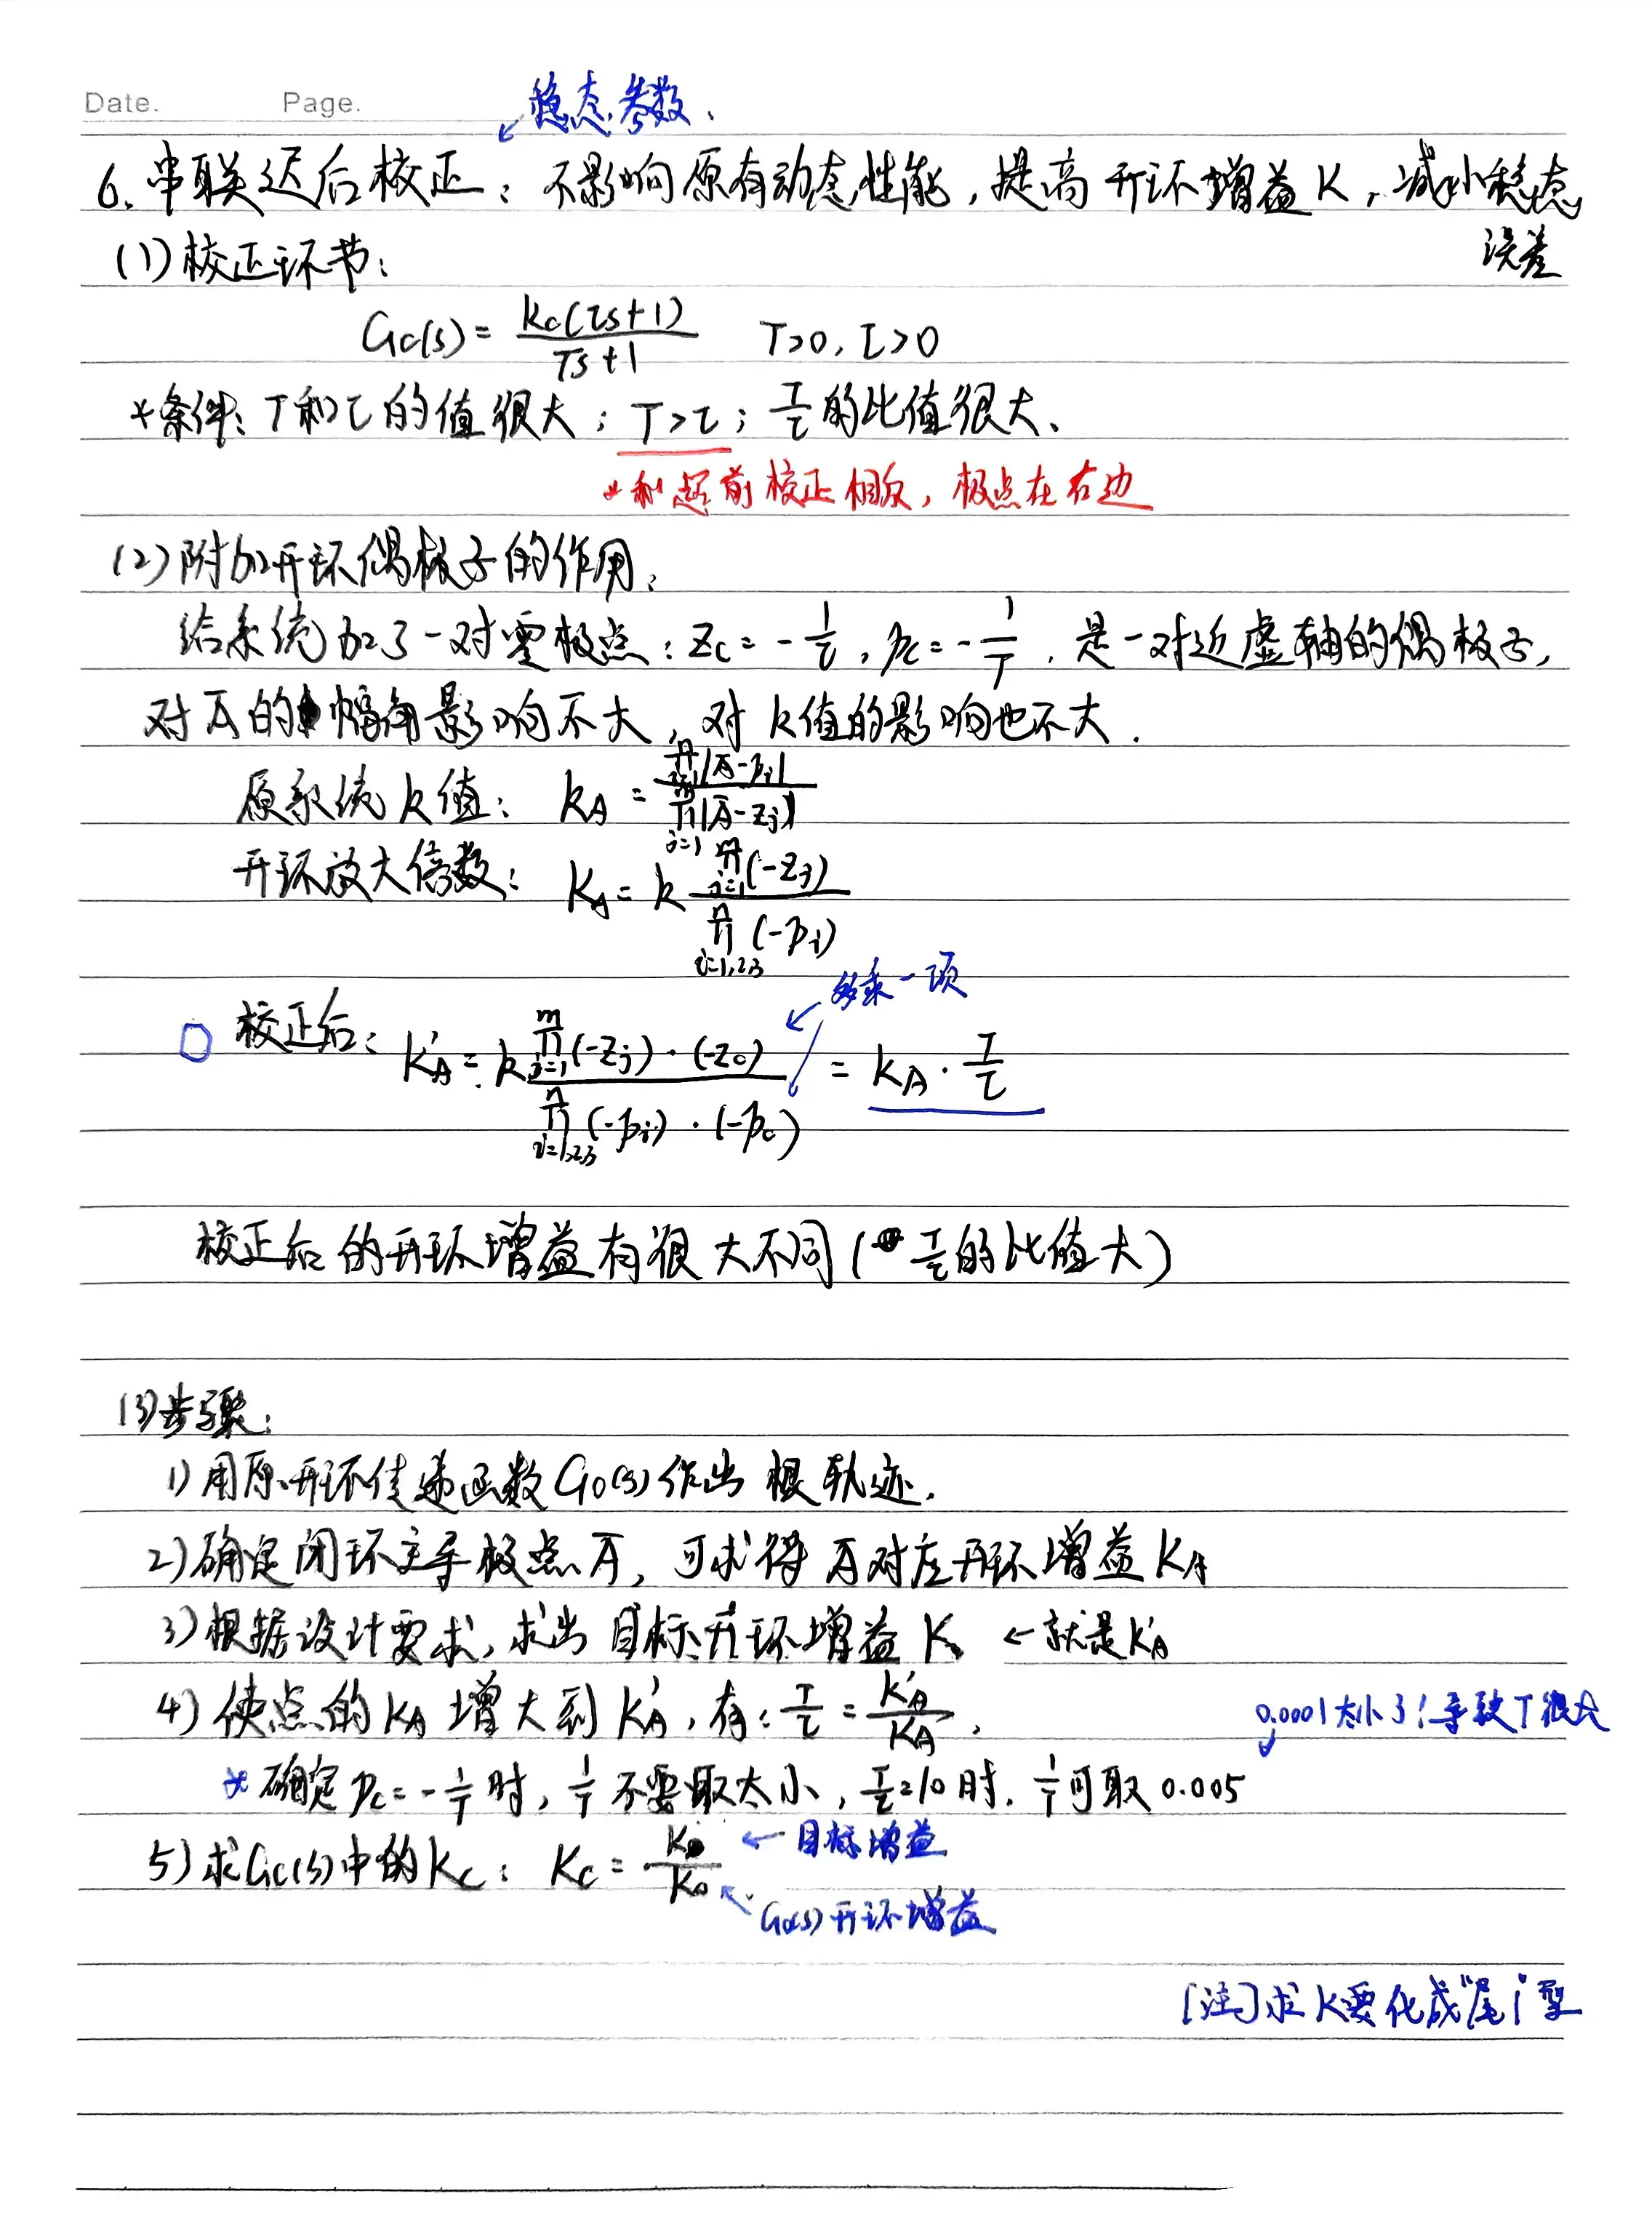 Date. Page.
稳态参数.
6. 串联迟后校正：不影响原有动态性能，提高开环增益K，减小稳态
误差
(1) 校正环节：
Gc(s) = kc(τs+1) / Ts+1 T>0, τ>0
*条件：T和τ的值很大；T>τ；T/τ的比值很大、
*和超前校正相反，极点在右边
(2) 附加开环偶极子的作用：
给系统加了一对零极点：Zc = -1/τ，pc = -1/T，是一对近虚轴的偶极子，
对Ā的幅角影响不大，对k值的影响也不大.
原系统k值：kA = ∏|Ā-pi| / ∏j=1|Ā-zj|
开环放大倍数：KA = k ∏j=1(-zj) / n∏i=1,2,3(-pi)
多乘一项
校正后：K'A = k m∏j=1(-zj)·(-zc) / n∏i=1,2,3(-pi)·(-pc) = KA·T/τ
校正后的开环增益有很大不同(T/τ的比值大)
(3) 步骤：
1) 用原开环传递函数G0(s)作出根轨迹.
2) 确定闭环主导极点Ā，可求得Ā对应开环增益KA
3) 根据设计要求，求出目标开环增益K ←就是K'A
4) 使点的KA增大到K'A，有：T/τ = K'A/KA，
0.0001太小了！导致T很大
*确定pc = -1/T时，1/T不要取太小，T/τ=10时，1/T可取0.005
5) 求Gc(s)中的Kc：Kc = K/K0 ←目标增益
G0(s)开环增益
[注]求K要化成“尾1”型